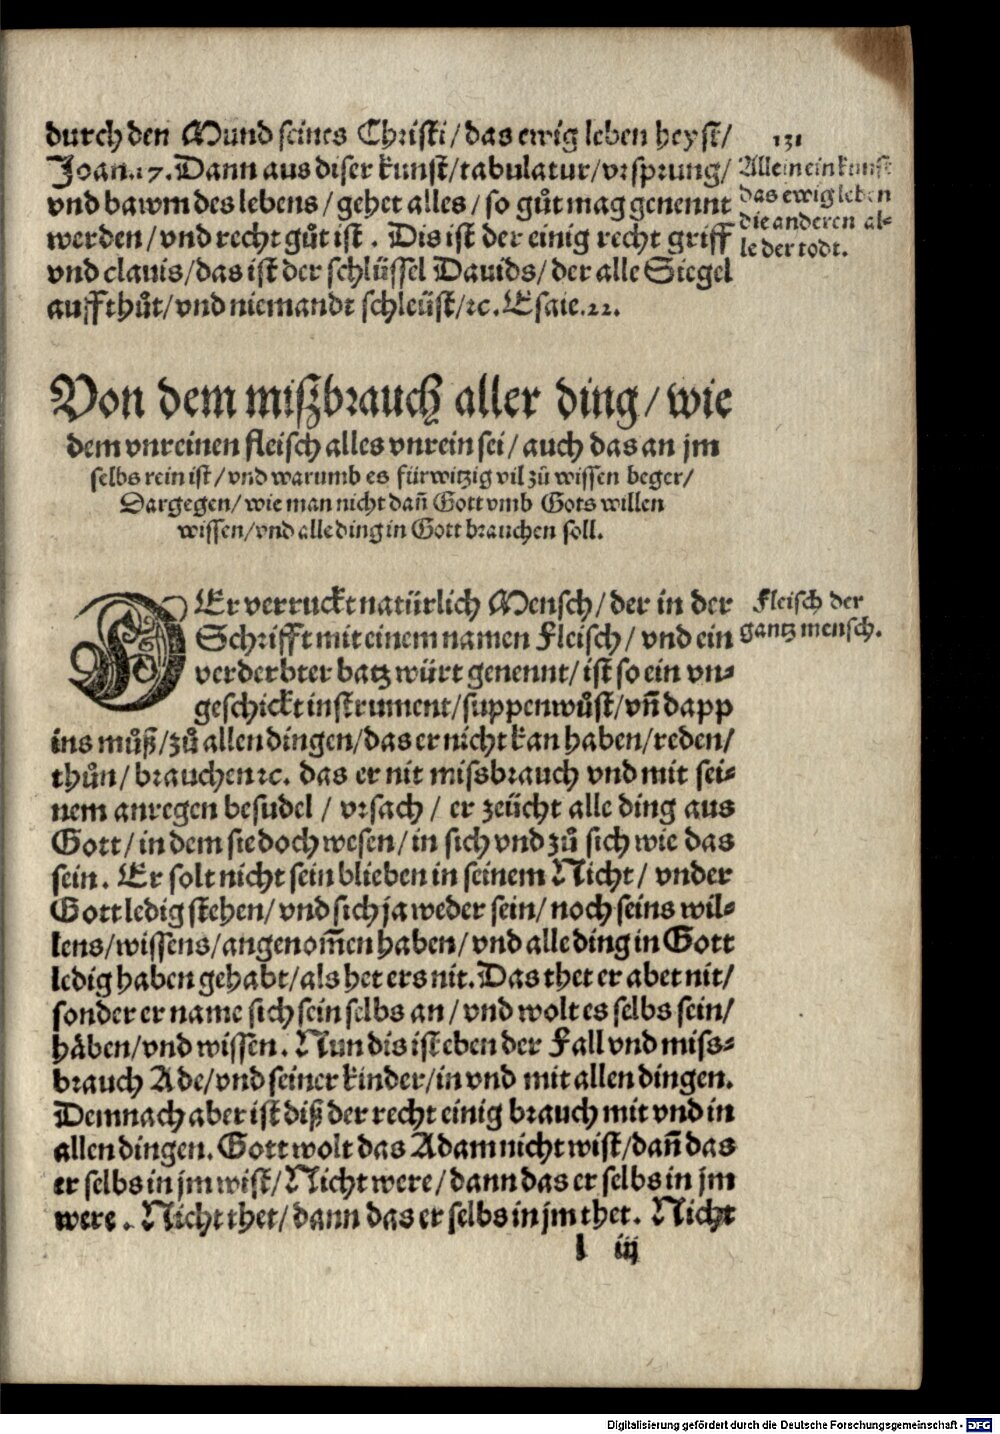 131
durch den Mund seines Christi / das ewig leben heyst /
Joan.17. Dann aus diser kunst / tabulatur / vrsprung /
vnd bawm des lebens / gehet alles / so gůt mag genennt
werden / vnd recht gůt ist . Dis ist der einig recht griff
vnd clauis / das ist der schlüssel Dauids / der alle Siegel
auffthůt / vnd niemandt schleüst / ꝛc. Esaie.22.
Allein ein kunst
das ewig leben
die anderen al⸗
le der todt.
Von dem mißbrauch aller ding / wie
dem vnreinen fleisch alles vnrein sei / auch das an jm
selbs rein ist / vnd warumb es fürwitzig vil zů wissen beger /
Dargegen / wie man nicht dañ Gott vmb Gots willen
wissen / vnd alle ding in Gott brauchen soll.
DEr verruckt natürlich Mensch / der in der
Schrifft mit einem namen Fleisch / vnd ein
verderbter batz würt genennt / ist so ein vn⸗
geschickt instrument / suppenwůst / vñ dapp
ins můß / zů allen dingen / das er nicht kan haben / reden /
thůn / brauchen ꝛc. das er nit missbrauch vnd mit sei⸗
nem anregen besudel / vrsach / er zeücht alle ding aus
Gott / in dem sie doch wesen / in sich vnd zů sich wie das
sein . Er solt nicht sein blieben in seinem Nicht / vnder
Gott ledig stehen / vnd sich ja weder sein / noch seins wil⸗
lens / wissens / angenom̄en haben / vnd alle ding in Gott
ledig haben gehabt / als het ers nit. Das thet er abet nit /
sonder er name sich sein selbs an / vnd wolt es selbs sein /
håben / vnd wissen . Nun dis ist eben der Fall vnd miss⸗
brauch Ade / vnd seiner kinder / in vnd mit allen dingen.
Demnach aber ist diß der recht einig brauch mit vnd in
allen dingen. Gott wolt das Adam nicht wist / dañ das
er selbs in jm wist / Nicht were / dann das er selbs in jm
were . Nicht thet / dann das er selbs in jm thet. Nicht
Fleisch der
gantz mensch.
l iij
Digitalisierung gefördert durch die Deutsche Forschungsgemeinschaft - DFG